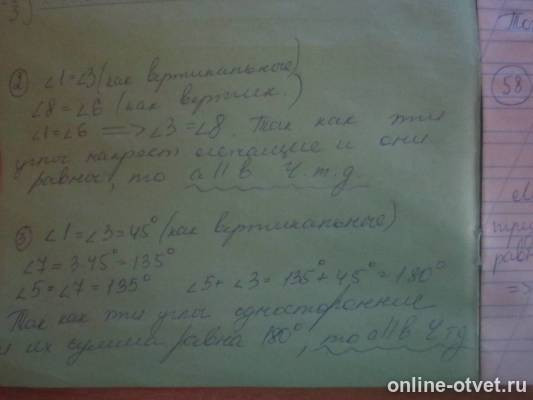 ② ∠1=∠3 (как вертикальные)
∠8=∠6 (как вертик.)
∠1=∠6 => ∠3=∠8. Так как эти
углы накрест лежащие и они
равны, то a||b ч.т.д.
③ ∠1=∠3=45° (как вертикальные)
∠7=3·45°=135°
∠5=∠7=135° ∠5+∠3=135°+45°=180°
Так как эти углы односторонние
и их сумма равна 180°, то a||b ч.т.д
58
online-otvet.ru